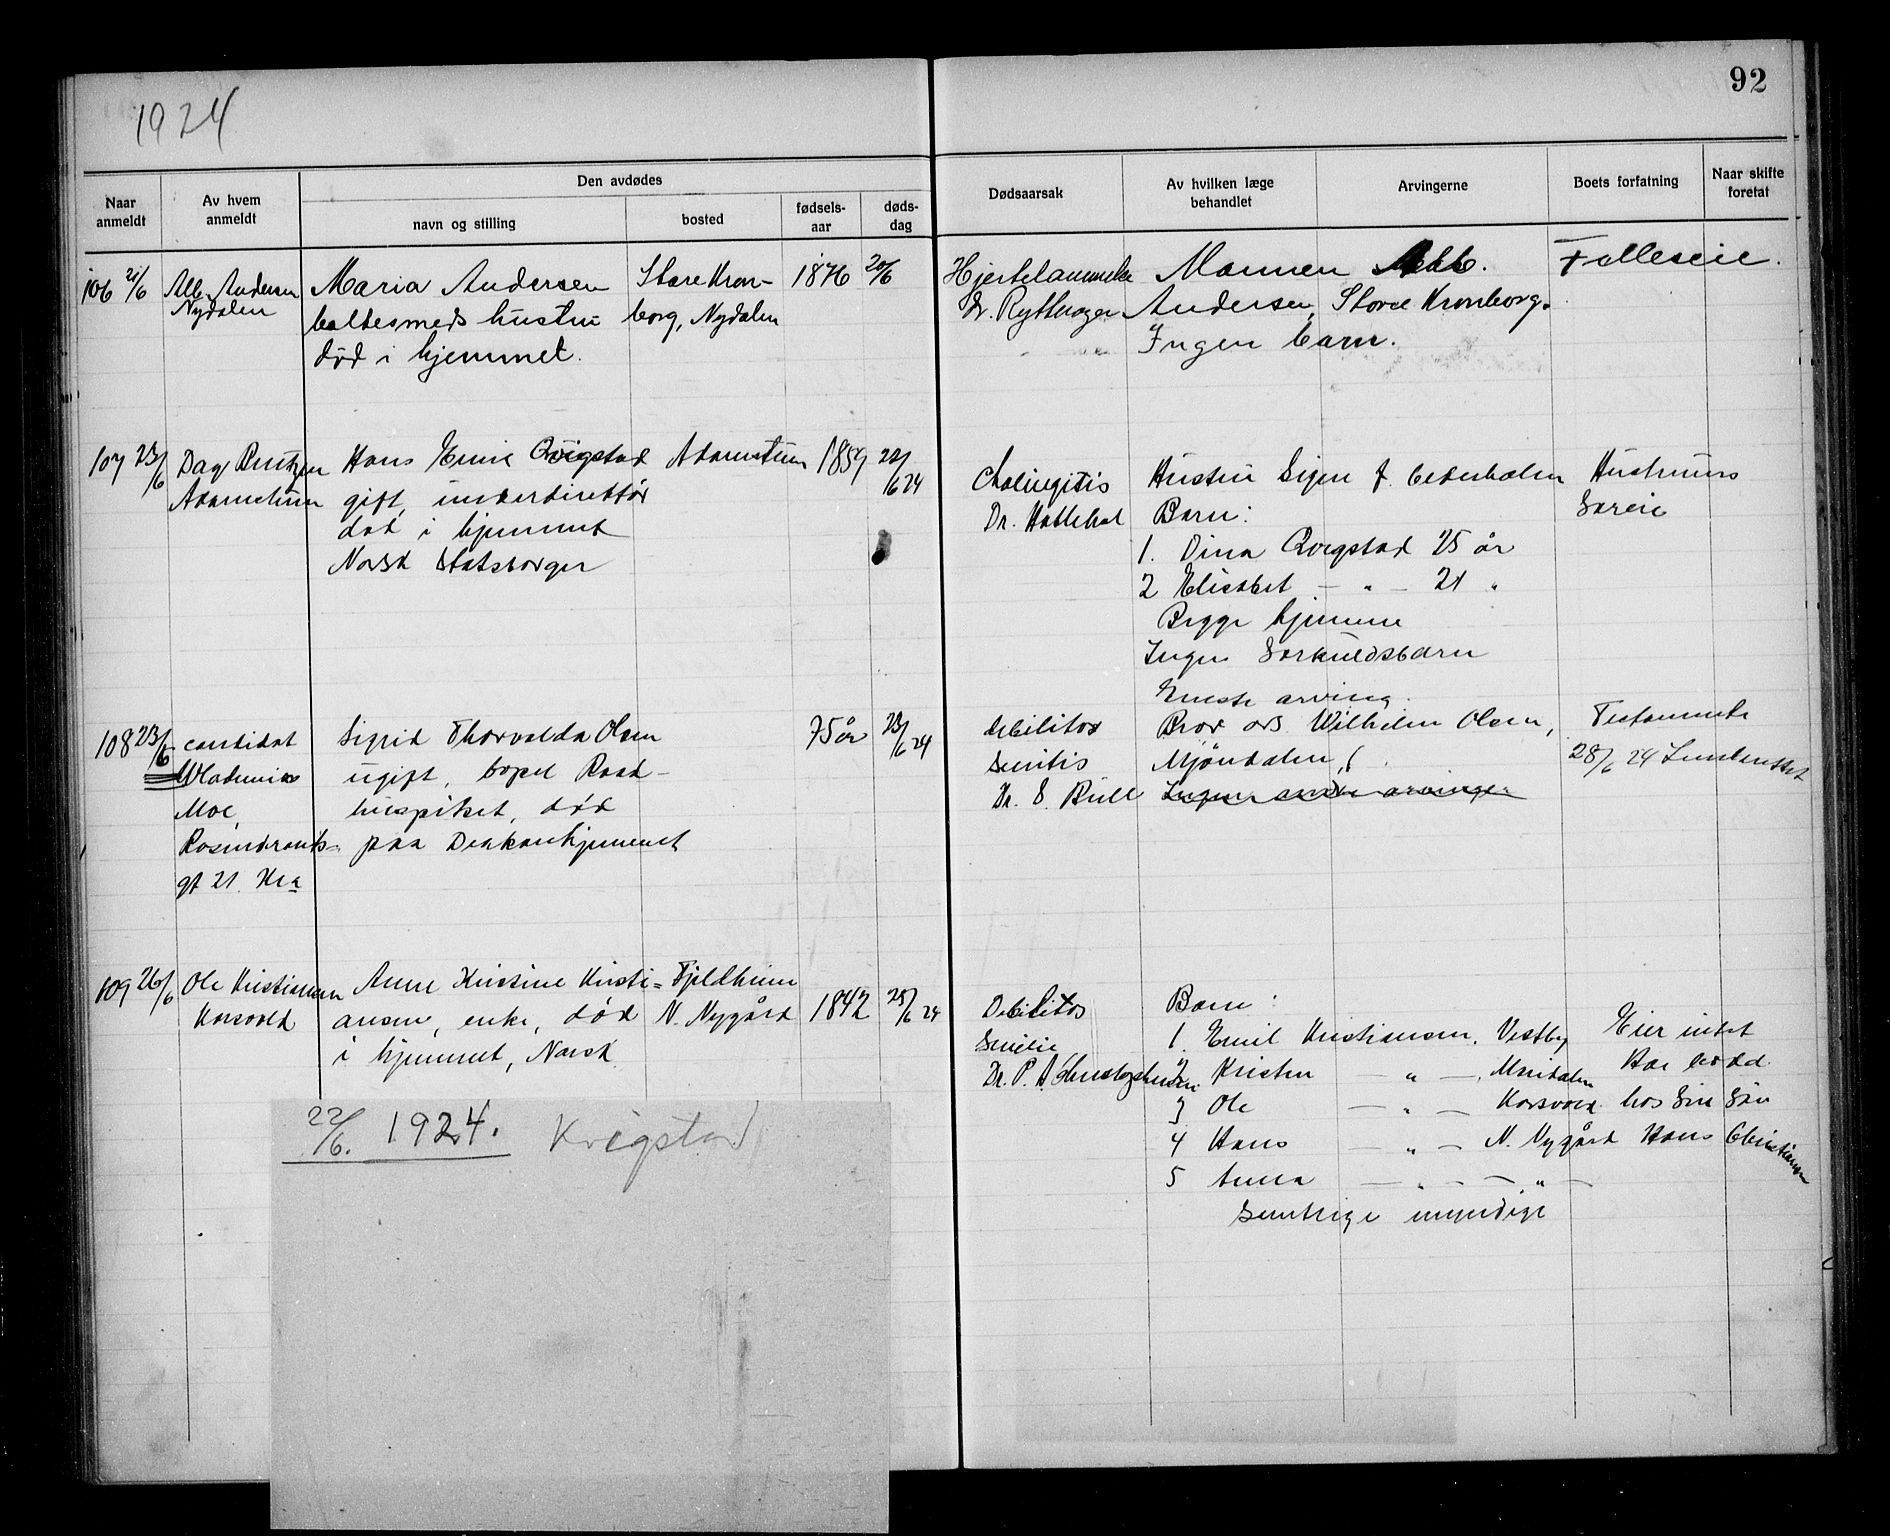 1924
92
Naar anmeldt
Av hvem anmeldt
Den avdødes
navn og stilling
bosted
fødsels-aar
døds-dag
Dødsaarsak
Av hvilken læge behandlet
Arvingerne
Boets forfatning
Naar skifte foretat
106 21/6
Alb. Andersen
Nydalen
Maria Andersen
boltesmeds hustru
død i hjemmet.
Store Kron-
borg, Nydalen
1876
20/6
Hjertelammelse
Dr. Rytterager
Mannen Alb.
Andersen, Store Kronborg.
Ingen barn.
Felleseie.
107 23/6
Dag
Adamstuen
Hans Emil Qvigstad
gift, underdirektør
død i hjemmet
Norsk statsborger
Adamstuen
1859
22/6 24
Dr.
Hustru f. Cederholm
Barn:
1. Dina Qvigstad 25 år
2 Elisabet — " — 21 "
Begge hjemme
Ingen særkuldsbarn
Hustruens
særeie
108 23/6
candidat
Wladimir
Moe,
Rosenkrants-
gt 21. Kra
Sigrid Thorvalda Olsen
ugift, bopel Raad-
hospitset, død
paa Diakonhjemmet
75 år
23/6 24
Debilitas
senilis
Dr. E. Bull
Eneste arving
Bror Wilhelm Olsen,
Mjöndalen,
Ingen andre arvinger
Testamente
28/6 24
109 26/6
Ole Kristiansen
Korsvold
Anne Kristine Kristi-
ansen, enke, død
i hjemmet, Norsk
Fjeldheim
N. Nygård
1842
25/6 24
Debilitas
Senilis
Dr. P. A.
Barn:
1. Emil Kristiansen, Vestby
2 Kristen — " — Maridalen
3 Ole — " — Korsvold
4 Hans — " — N. Nygård
5 Anna — " — — " —
Samtlige myndige
Eier intet
Har bodd
hos sin søn
Hans Christiansen
22/6. 1924. Kvigstad